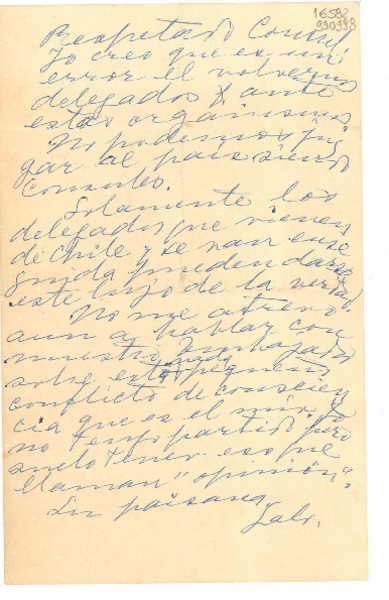 16582
930998
Respetado Consul,
Yo creo que es un
error el volvernos
delegados ante
estos organismos.
No podemos juz
gar al pais siendo
Consules.
Solamente los
delegados que vienen
de Chile y se van ense
guida pueden darse
este lujo de la verdad.
No me atrevo
aun a hablar con
nuestro Embajador
sobre este pequeño
conflicto de conscien
cia que es el mío. Yo
no tengo partido pero
suelo tener eso que
llaman "opinión".
Su paisana
Gab.